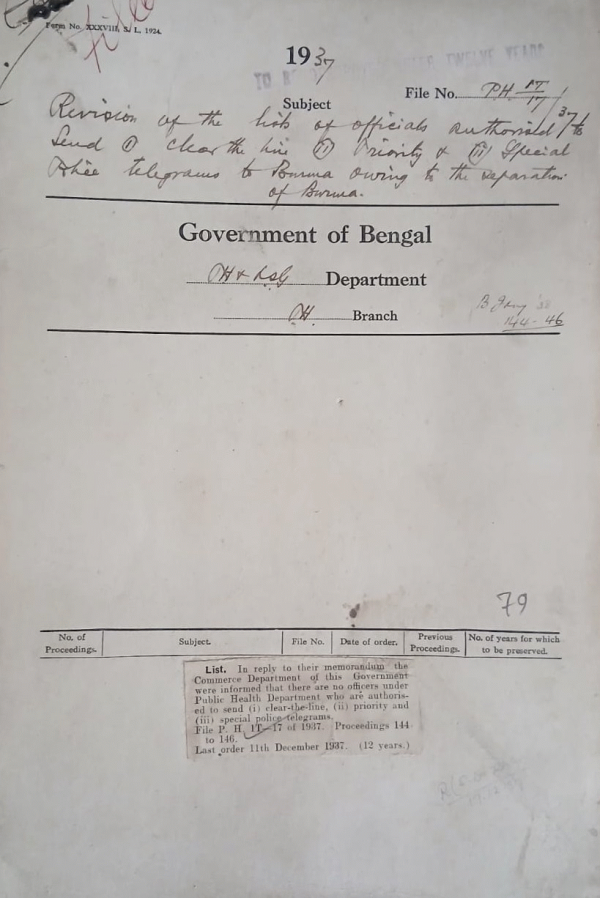 Form No. XXXVIII, S. L. 1934.
1937
TO BE TWELVE YEARS
File No. PH. 1T/17/37
Subject
Revision of the lists of officials authorised to
send (i) clear the line (ii) Priority & (iii) Special
Police telegrams to Burma owing to the separation
of Burma.
Government of Bengal
PH & LSG Department
PH. Branch
B Jany '38
144-46
79
No. of Proceedings. Subject. File No. Date of order. Previous Proceedings. No. of years for which to be preserved.
List. In reply to their memorandum the
Commerce Department of this Government
were informed that there are no officers under
Public Health Department who are authoris-
ed to send (i) clear-the-line, (ii) priority and
(iii) special police telegrams.
File P. H. 1T—17 of 1937. Proceedings 144
to 146.
Last order 11th December 1937. (12 years.)